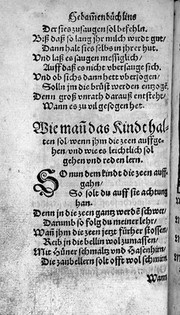 Hebam̃enbüchlins
Der sies zusaugen sol befehln.
Biß daß so lang ihr milch wirdt gut/
Dann halt sies selbs in ihrer hut.
Und laß es saugen messiglich/
Auff daß es nicht ubersauge sich.
Und ob sichs dann hett ubersogen/
Solln jm die brüst werden entzogẽ.
Denn groß unrath darauß entsteht/
Wann es zu vil gesogen het.
Wie mañ das Kindt halten
sol wenn jhm die zeen auffgehen/
und wie es leichtlich sol
gehen und reden lern.
SO nun dem kindt die zeen auffgahn/
So solt du auff sie achtung
han.
Denn jn die zeen gantz werdẽ schwer/
Darumb so folg du meiner lehr.
Wañ jhm die zeen jetzt fürher stossen/
Reib jn die bellin wol zumassen/
Mit Hüner schmaltz und Hasenhirn/
Die zanbellern solt offt wol schmirn
Wann